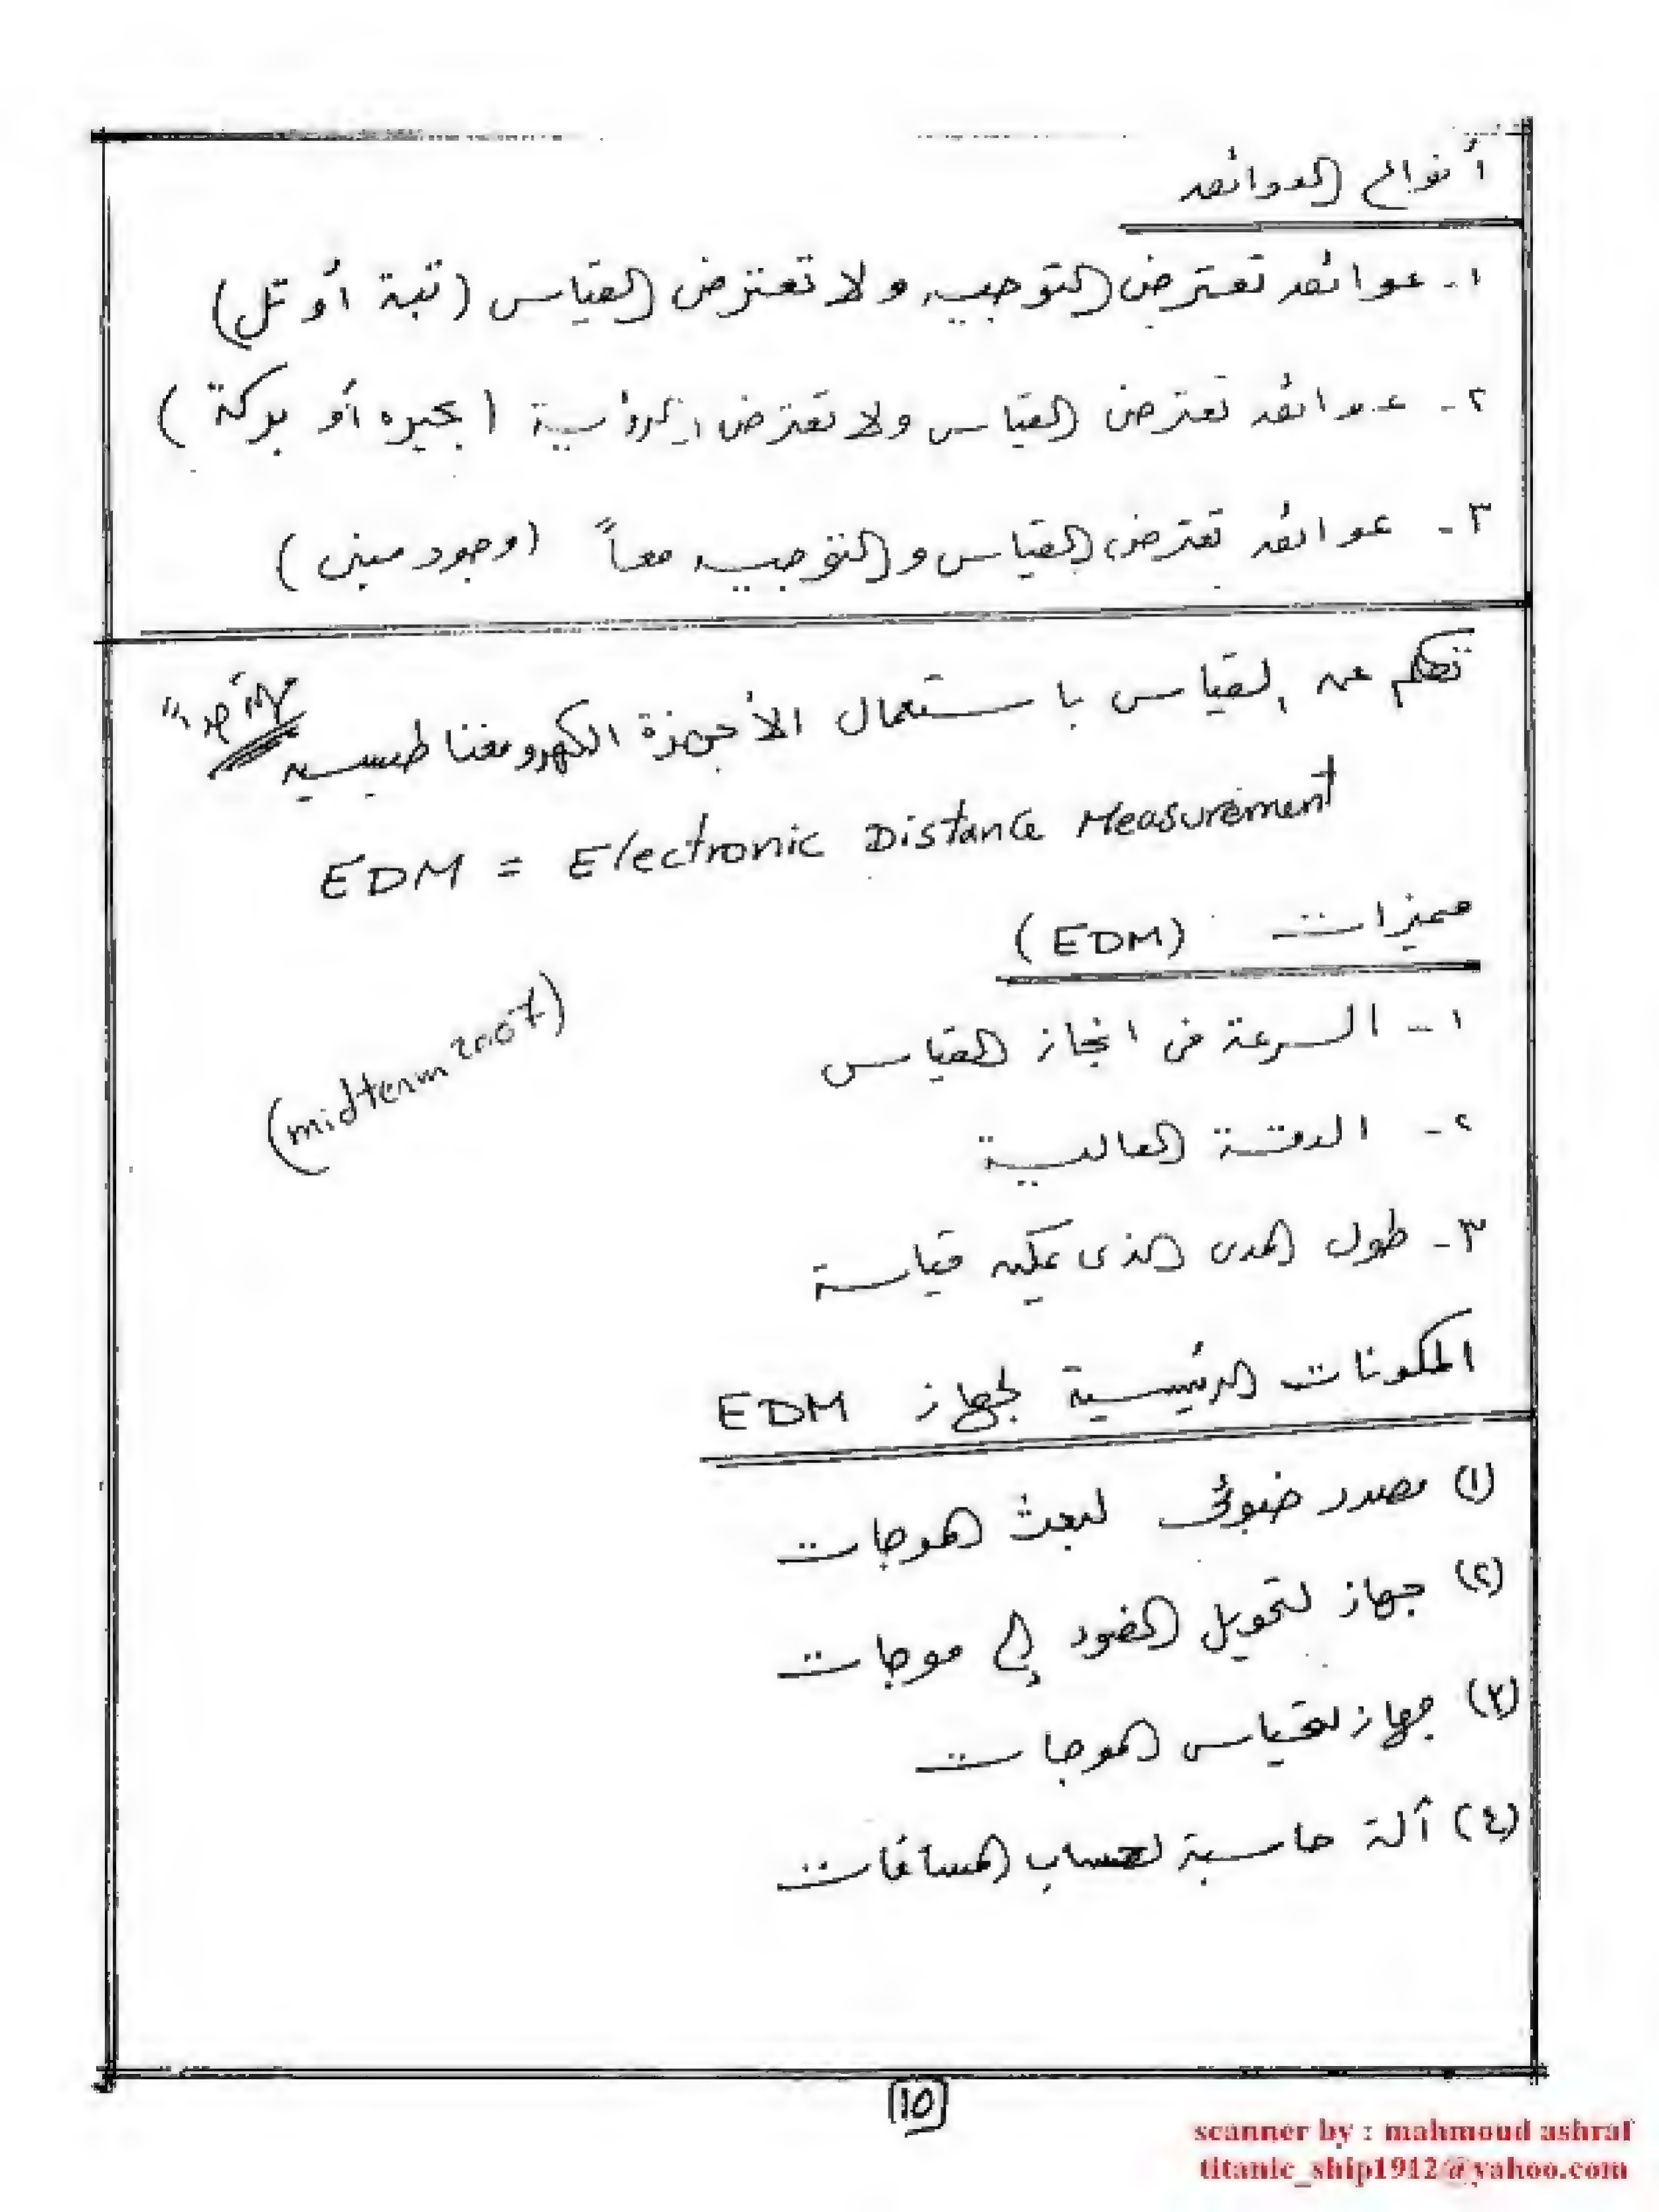 أنواع العوائق
١- عوائق تعترض التوجيه ولا تعترض القياس (تبة أو تل)
٢- عوائق تعترض القياس ولا تعترض الرؤية (بحيره أو بركة)
٣- عوائق تعترض القياس والتوجيه معاً (وجود مبنى)
تكلم عن القياس باستعمال الأجهزة الكهرومغناطيسيه
"هام جداً"
EDM = Electronic Distance Measurement
مميزات (EDM)
١- السرعة فى انجاز القياس
(midterm 2007)
٢- الدقة العالية
٣- طول المدى الذى يمكن قياسة
المكونات الرئيسية لجهاز EDM
(١) مصدر ضوئى لبعث الموجات
(٢) جهاز لتحويل الضوء إلى موجات
(٣) جهاز لقياس الموجات
(٤) آلة حاسبة لحساب المسافات
10
scanner by : mahmoud ashraf
titanic_ship1912@yahoo.com